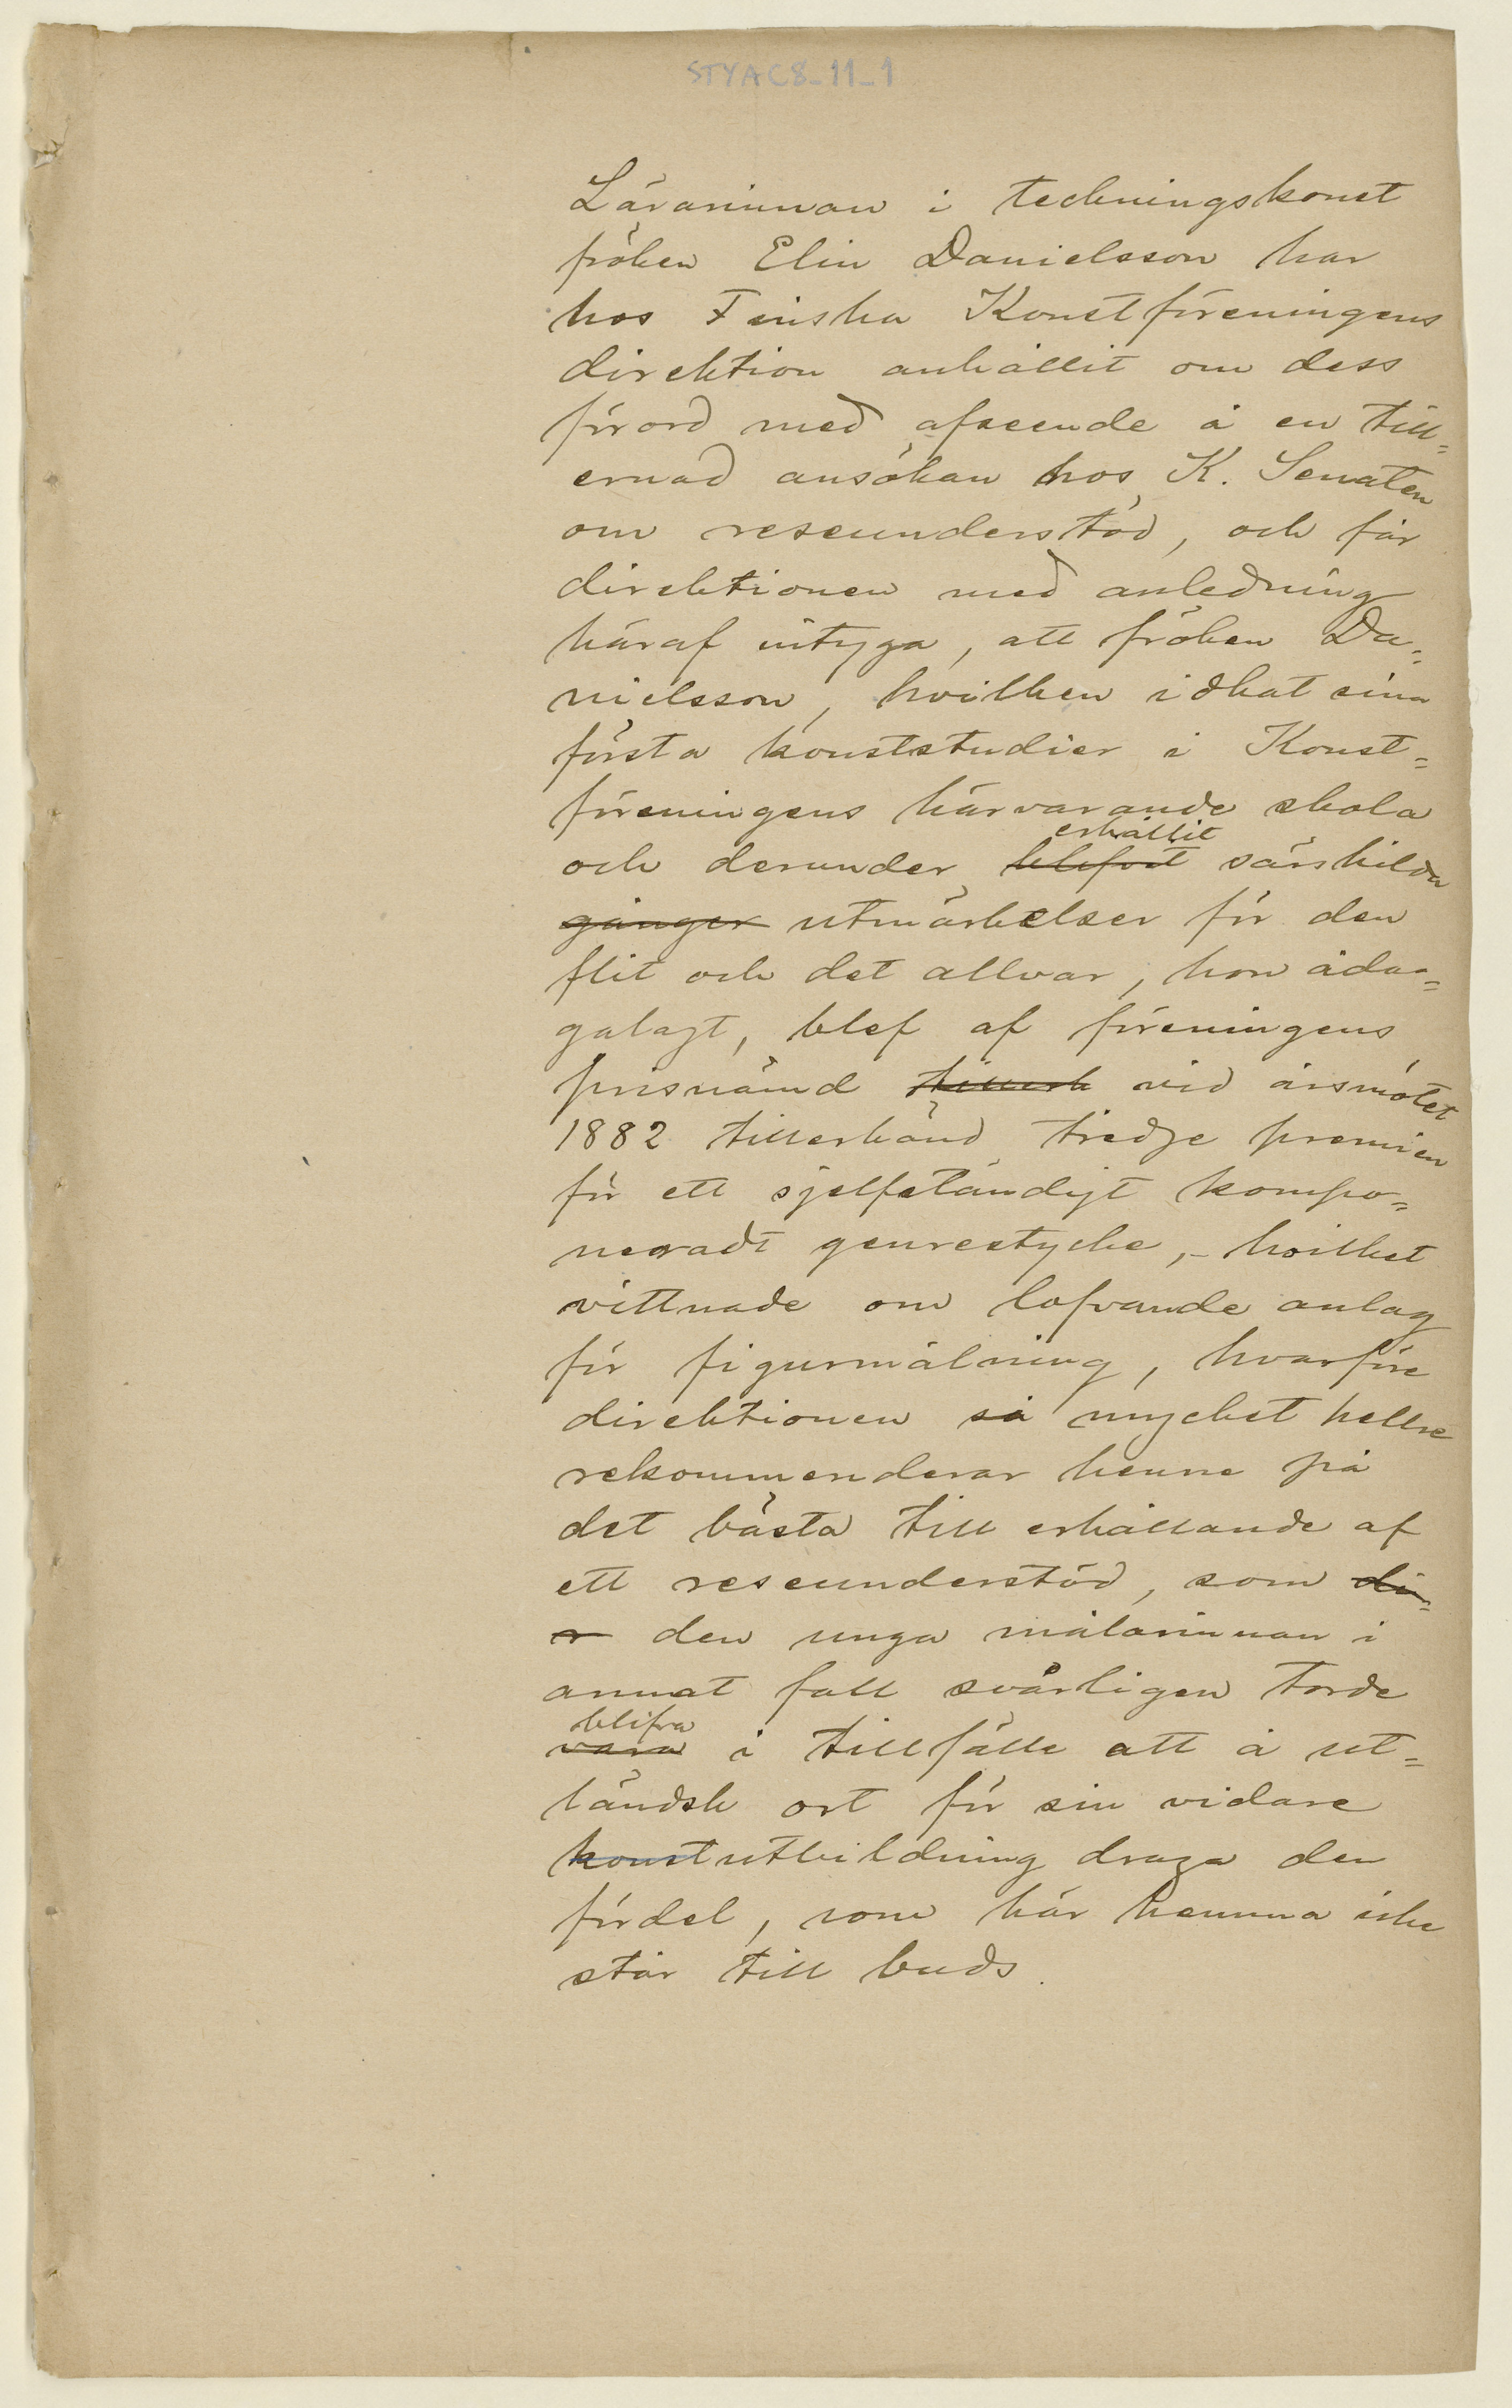 STYAC8_11_1
Lärarinnan i teckningskonst
fröken Elin Danielsson har
hos Finska Konstföreningens
direktion anhållit om dess
förord med afseende å en till=
ernad ansökan hos K. Senaten
om reseunderstöd, och får
direktionen med anledning
häraf intyga, att fröken Da=
nielsson, hvilken idkat sina
första konststudier i Konst=
föreningens härvarande skola
erhållit
och derunder blefvit särskilda
gånger utmärkelser för den
flit och det allvar, hon åda=
galagt, blef af föreningens
prisnämd tillerk vid årsmötet
1882 tillerkänd tredje premien
för ett sjelfständigt kompo=
neradt genrestycke, - hvilket
vittnade om lofvande anlag
för figurmålning, hvarföre
direktionen så mycket hellre
rekommenderar henne på
det bästa till erhållande af
ett reseunderstöd, som di=
r den unga målarinnan i
annat fall svårligen torde
blifva
vara i tillfälle att å ut=
ländsk ort för sin vidare
konstutbildning draga den
fördel, som här hemma icke
står till buds.